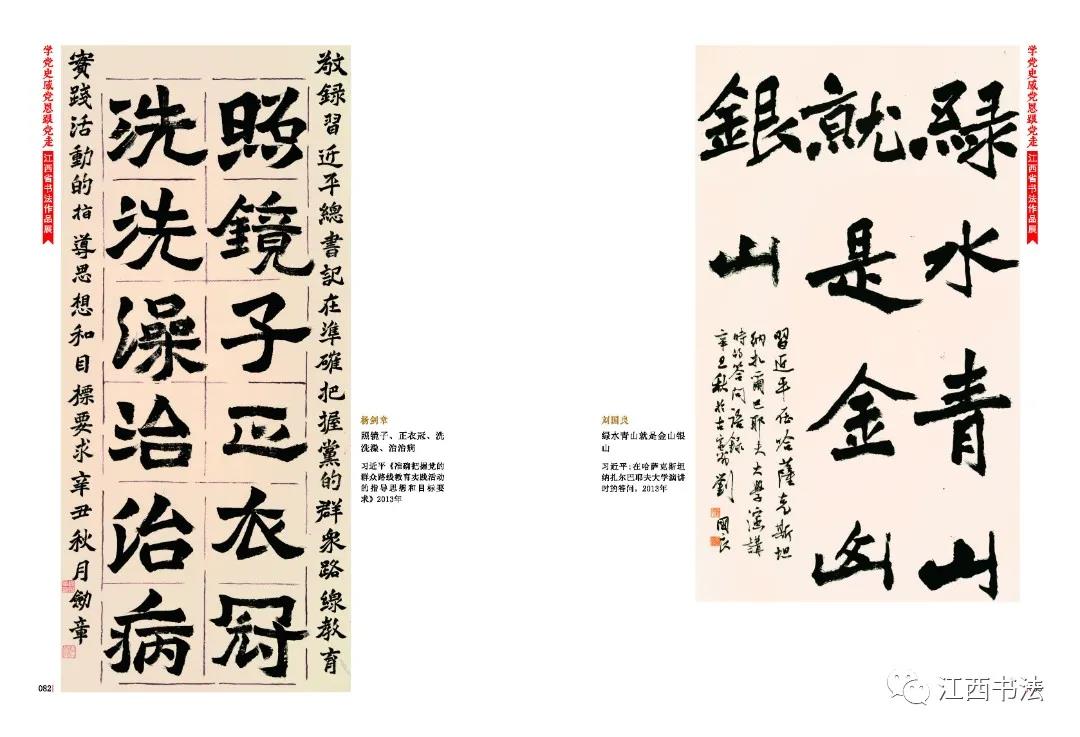 学党史感党恩跟党走
江西省书法作品展
敬録習近平總書記在準確把握黨的群衆路線教育
照鏡子正衣冠
洗洗澡治治病
實踐活動的指導思想和目標要求辛丑秋月劍章
杨剑章
照镜子、正衣冠、洗
洗澡、治治病
习近平《准确把握党的
群众路线教育实践活动
的指导思想和目标要
求》2013年
082
刘国良
绿水青山就是金山银
山
习近平：在哈萨克斯坦
纳扎尔巴耶夫大学演讲
时的答问，2013年
緑水青山
就是金山
銀山
習近平在哈薩克斯坦
納扎爾巴耶夫大學演講
時的答问語録
辛丑秋於古 劉國良
学党史感党恩跟党走
江西省书法作品展
江西书法